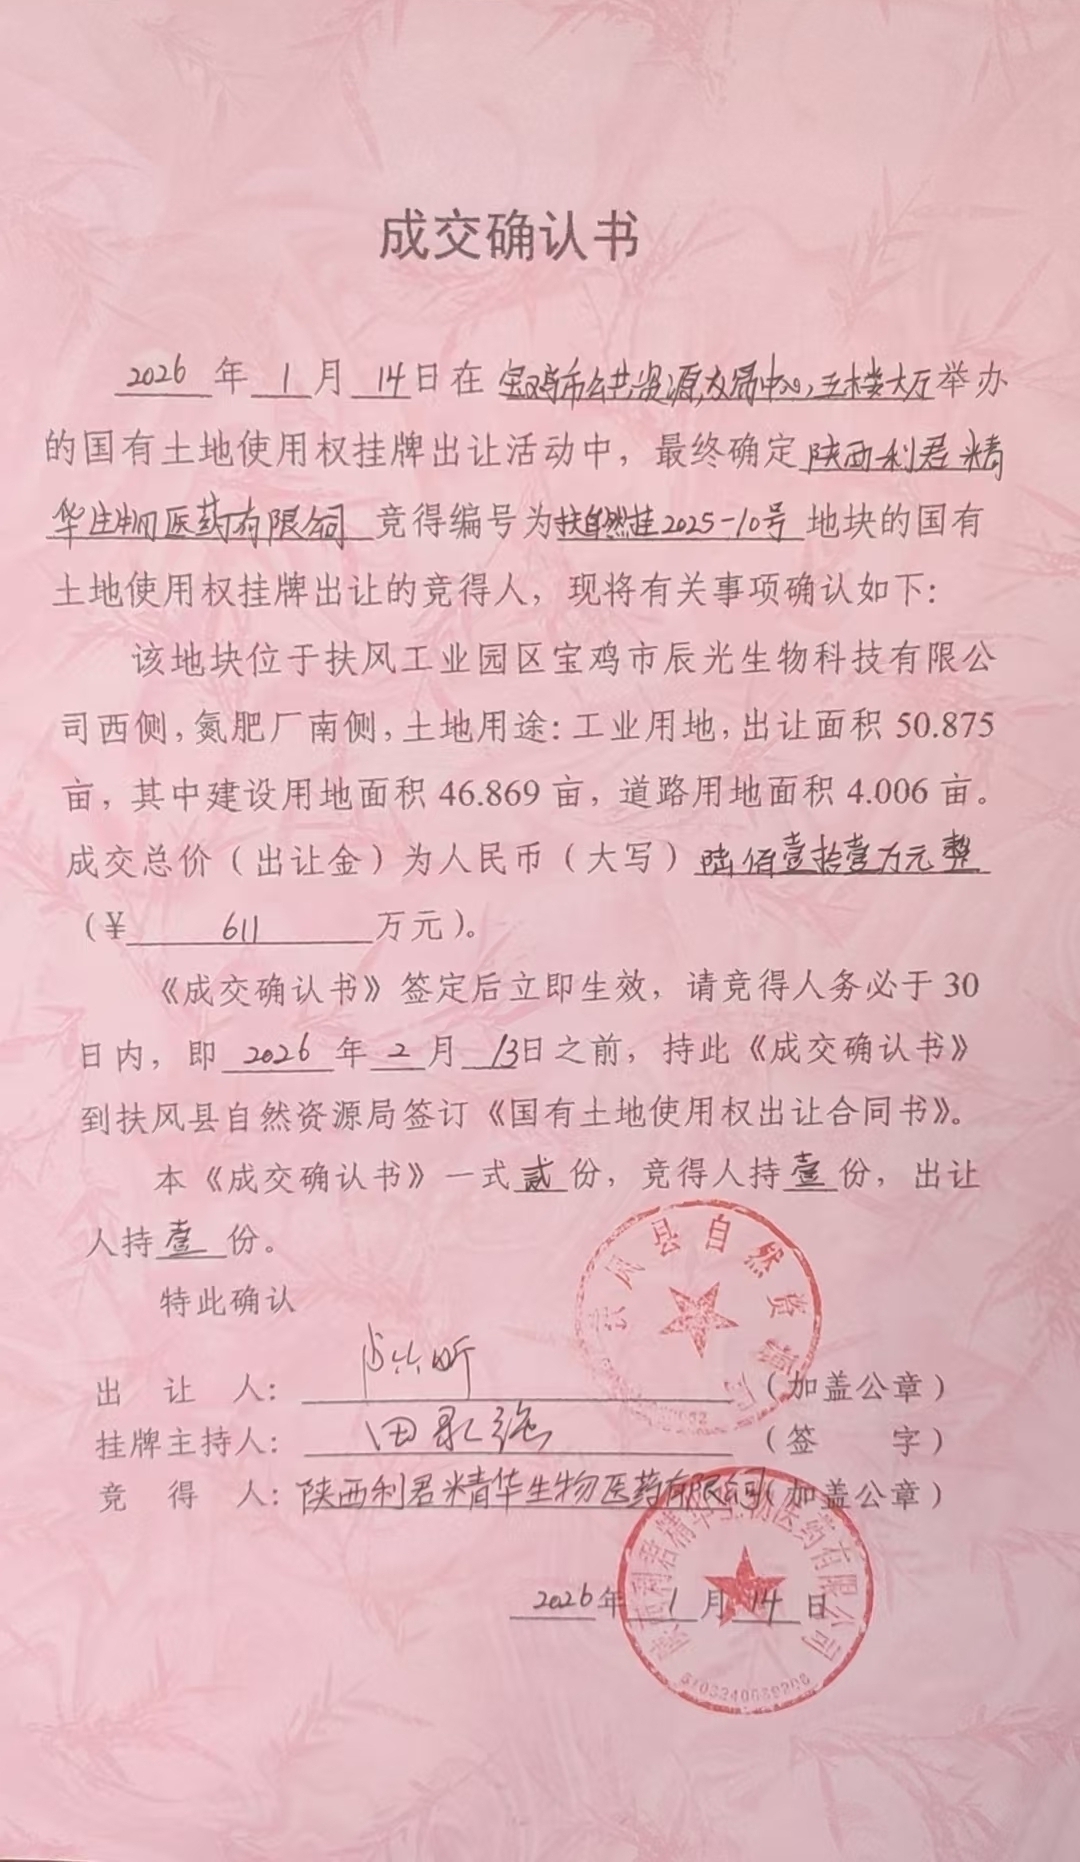 成交确认书
2026 年 1 月 14日在 宝鸡市公共资源交易中心三楼大厅举办
的国有土地使用权挂牌出让活动中，最终确定 陕西利君精
华生物医药有限公司 竞得编号为扶自然挂2025-10号 地块的国有
土地使用权挂牌出让的竞得人，现将有关事项确认如下：
该地块位于扶风工业园区宝鸡市辰光生物科技有限公
司西侧，氮肥厂南侧，土地用途：工业用地，出让面积 50.875
亩，其中建设用地面积 46.869 亩，道路用地面积 4.006 亩。
成交总价（出让金）为人民币（大写）陆佰壹拾壹万元整
（¥ 611 万元）。
《成交确认书》签定后立即生效，请竞得人务必于 30
日内，即 2026 年 2 月 13日之前，持此《成交确认书》
到扶风县自然资源局签订《国有土地使用权出让合同书》。
本《成交确认书》一式贰份，竞得人持壹份，出让
人持壹 份。
特此确认
扶风县自然资源局
出 让 人： （加盖公章）
挂牌主持人： （签 字）
竞 得 人：陕西利君精华生物医药有限公司（加盖公章）
陕西利君精华生物医药有限公司
2026年 1 月 14 日